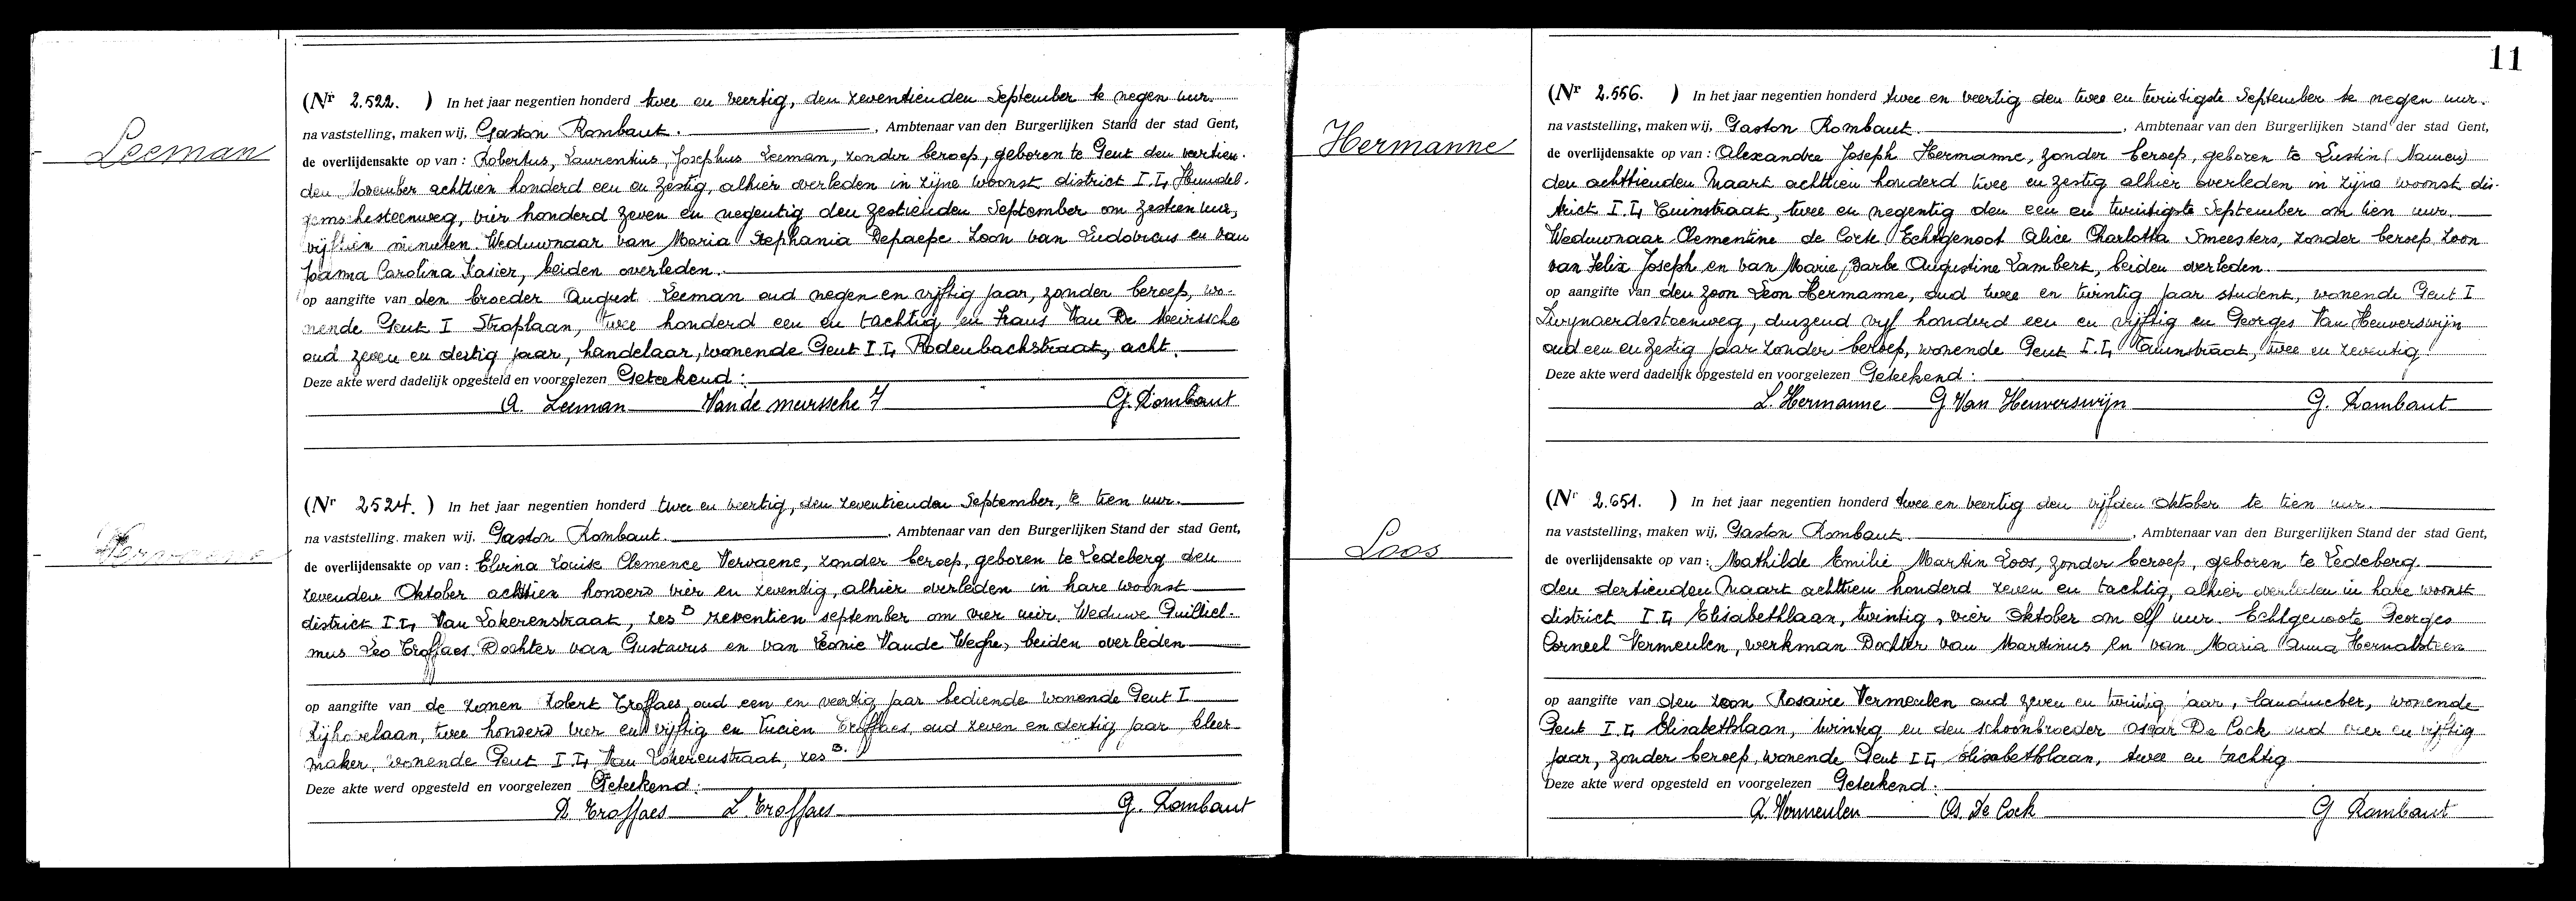 Leeman
(Nr 2.522. ) In het jaar negentien honderd twee en veertig, den zeventienden September te negen uur.
na vaststelling, maken wij, Gaston Rombaut. , Ambtenaar van den Burgerlijken Stand der stad Gent,
de overlijdensakte op van : Robertus, Laurentius, Josephus Leeman, zonder beroep, geboren te Gent den veertien-
den November achttien honderd een en zestig, alhier overleden in zijne woonst district I.I, Hundel-
gemschesteenweg, vier honderd zeven en negentig den zestienden September om zestien uur,
vijftien minuten. Weduwnaar van Maria Stephania Depaepe. Zoon van Ludovicus en van
Joanna Carolina Kasier, beiden overleden.
op aangifte van den broeder August Leeman oud negen en vijftig jaar, zonder beroep, wo-
nende Gent I Stroplaan, twee honderd een en tachtig en Frans Van De Meirssche
oud zeven en dertig jaar, handelaar, wonende Gent I.I, Rodenbachstraat, acht.
Deze akte werd dadelijk opgesteld en voorgelezen Geteekend :
A. Leeman Van de meirssche F G. Rombaut
Vervaene
(Nr 2524. ) In het jaar negentien honderd twee en veertig, den zeventienden September, te tien uur.
na vaststelling. maken wij. Gaston Rombaut. , Ambtenaar van den Burgerlijken Stand der stad Gent,
de overlijdensakte op van : Elvina Louise Clemence Vervaene, zonder beroep, geboren te Ledeberg den
zevenden Oktober achttien honderd vier en zeventig, alhier overleden in hare woonst
district I.I, Van Lokerenstraat, zes B zeventien september om vier uur. Weduwe Guilliel-
mus Leo Troffaes. Dochter van Gustavus en van Leonie Vande Weghe, beiden overleden
op aangifte van de zonen Robert Troffaes, oud een en veertig jaar bediende wonende Gent I
Rijhovelaan, twee honderd vier en vijftig en Lucien Troffaes, oud zeven en dertig jaar, kleer-
maker, wonende Gent I.I, Van Lokerenstraat, zes B.
Deze akte werd opgesteld en voorgelezen Geteekend :
R Troffaes L. Troffaes G. Rombaut
11
Hermanne
(Nr 2.556. ) In het jaar negentien honderd twee en veertig den twee en twintigste September te negen uur.
na vaststelling, maken wij, Gaston Rombaut. , Ambtenaar van den Burgerlijken Stand der stad Gent,
de overlijdensakte op van : Alexandre Joseph Hermanne, zonder beroep, geboren te Lustin (Namen)
den achttienden Maart achttien honderd twee en zestig alhier overleden in zijne woonst dis-
trict I.I, Tuinstraat, twee en negentig den een en twintigste September om tien uur.
Weduwnaar Clementine de Corte. Echtgenoot Alice Charlotta Smeesters, zonder beroep. Zoon
van Felix Joseph en van Marie, Barbe Augustine Lambert, beiden overleden.
op aangifte van den zoon Leon Hermanne, oud twee en twintig jaar student, wonende Gent I
Zwynaerdesteenweg, duizend vijf honderd een en vijftig en Georges Van Heuverswijn
oud een en zestig jaar zonder beroep, wonende Gent I.I, Tuinstraat, twee en zeventig.
Deze akte werd dadelijk opgesteld en voorgelezen Geteekend :
L. Hermanne G Van Heuverswijn G. Rombaut
Loos
(Nr 2.651. ) In het jaar negentien honderd twee en veertig den vijfden Oktober te tien uur.
na vaststelling, maken wij, Gaston Rombaut. , Ambtenaar van den Burgerlijken Stand der stad Gent,
de overlijdensakte op van : Mathilde Emilie Martin Loos, zonder beroep, geboren te Ledeberg
den dertienden Maart achttien honderd zeven en tachtig, alhier overleden in hare woonst
district I.I, Elisabethlaan, twintig, vier Oktober om elf uur. Echtgenoote Georges
Corneel Vermeulen, werkman Dochter van Martinus en van Maria Anna Hernalsteen
op aangifte van den zoon Rosaire Vermeulen oud zeven en twintig jaar, landmeter, wonende
Gent I.I, Elisabethlaan, twintig en den schoonbroeder Oscar De Cock oud vier en vijftig
jaar, zonder beroep, wonende Gent I.I, Elisabethlaan, twee en tachtig
Deze akte werd opgesteld en voorgelezen Geteekend :
R. Vermeulen Os. De Cock G Rombaut